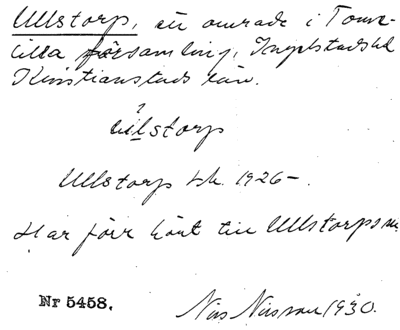 Ullstorp, ett område i Tome-
lilla församling, Ingelstads hd
Kristianstads län.
ùlstorp
Ullstorp sk. 1926–.
Har förr hört till Ullstorps sn.
Nr 5458.
Nils Nilsson 1930.